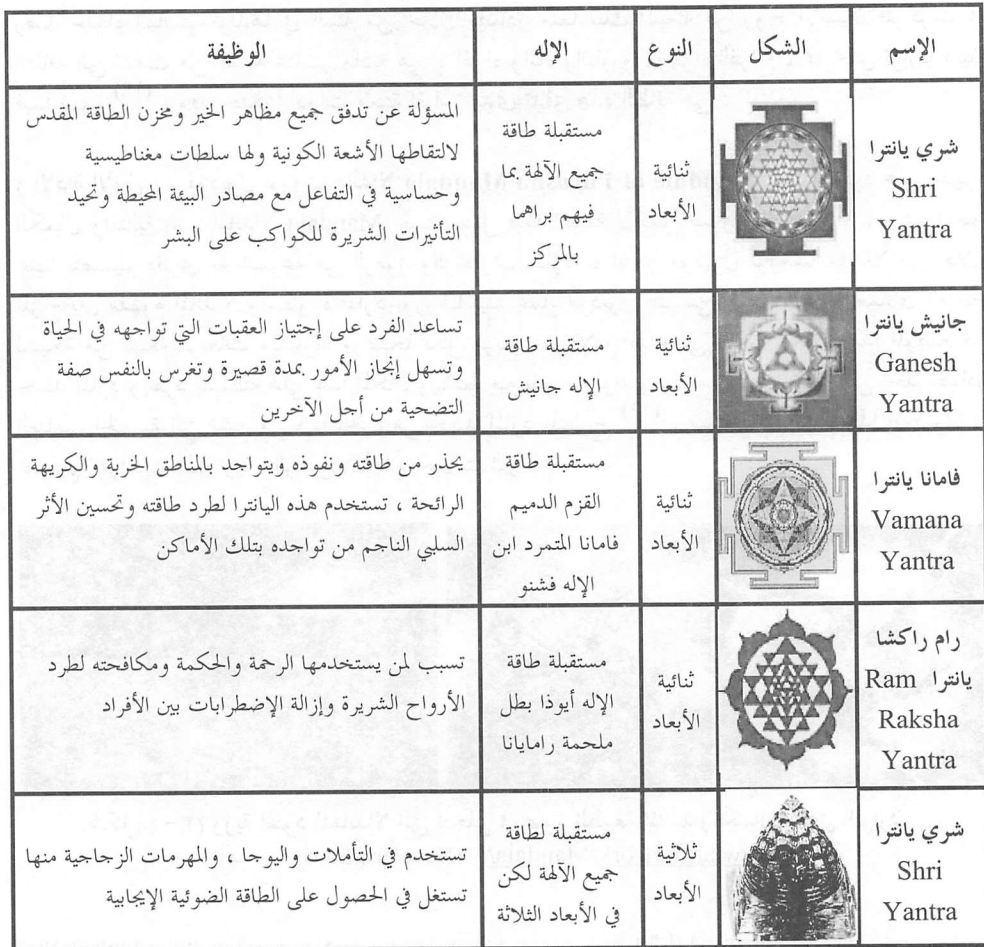 الإسم الشكل النوع الإله الوظيفة
شري يانترا
Shri
Yantra
ثنائية
الأبعاد
مستقبلة طاقة
جميع الآلهة بما
فيهم براهما
بالمركز
المسؤلة عن تدفق جميع مظاهر الخير ومخزن الطاقة المقدس
لالتقاطها الأشعة الكونية ولها سلطات مغناطيسية
وحساسية في التفاعل مع مصادر البيئة المحيطة وتحيد
التأثيرات الشريرة للكواكب على البشر
جانيش يانترا
Ganesh
Yantra
ثنائية
الأبعاد
مستقبلة طاقة
الإله جانيش
تساعد الفرد على إجتياز العقبات التي تواجهه في الحياة
وتسهل إنجاز الأمور بمدة قصيرة وتغرس بالنفس صفة
التضحية من أجل الآخرين
فامانا يانترا
Vamana
Yantra
ثنائية
الأبعاد
مستقبلة طاقة
القزم الدميم
فامانا المتمرد ابن
الإله فشنو
يحذر من طاقته ونفوذه ويتواجد بالمناطق الخربة والكريهة
الرائحة ، تستخدم هذه اليانترا لطرد طاقته وتحسين الأثر
السلبي الناجم من تواجده بتلك الأماكن
رام راكشا
يانترا Ram
Raksha
Yantra
ثنائية
الأبعاد
مستقبلة طاقة
الإله أيوذا بطل
ملحمة رامايانا
تسبب لمن يستخدمها الرحمة والحكمة ومكافحته لطرد
الأرواح الشريرة وإزالة الإضطرابات بين الأفراد
شري يانترا
Shri
Yantra
ثلاثية
الأبعاد
مستقبلة لطاقة
جميع الآلهة لكن
في الأبعاد الثلاثة
تستخدم في التأملات واليوجا ، والمهرمات الزجاجية منها
تستغل في الحصول على الطاقة الضوئية الإيجابية